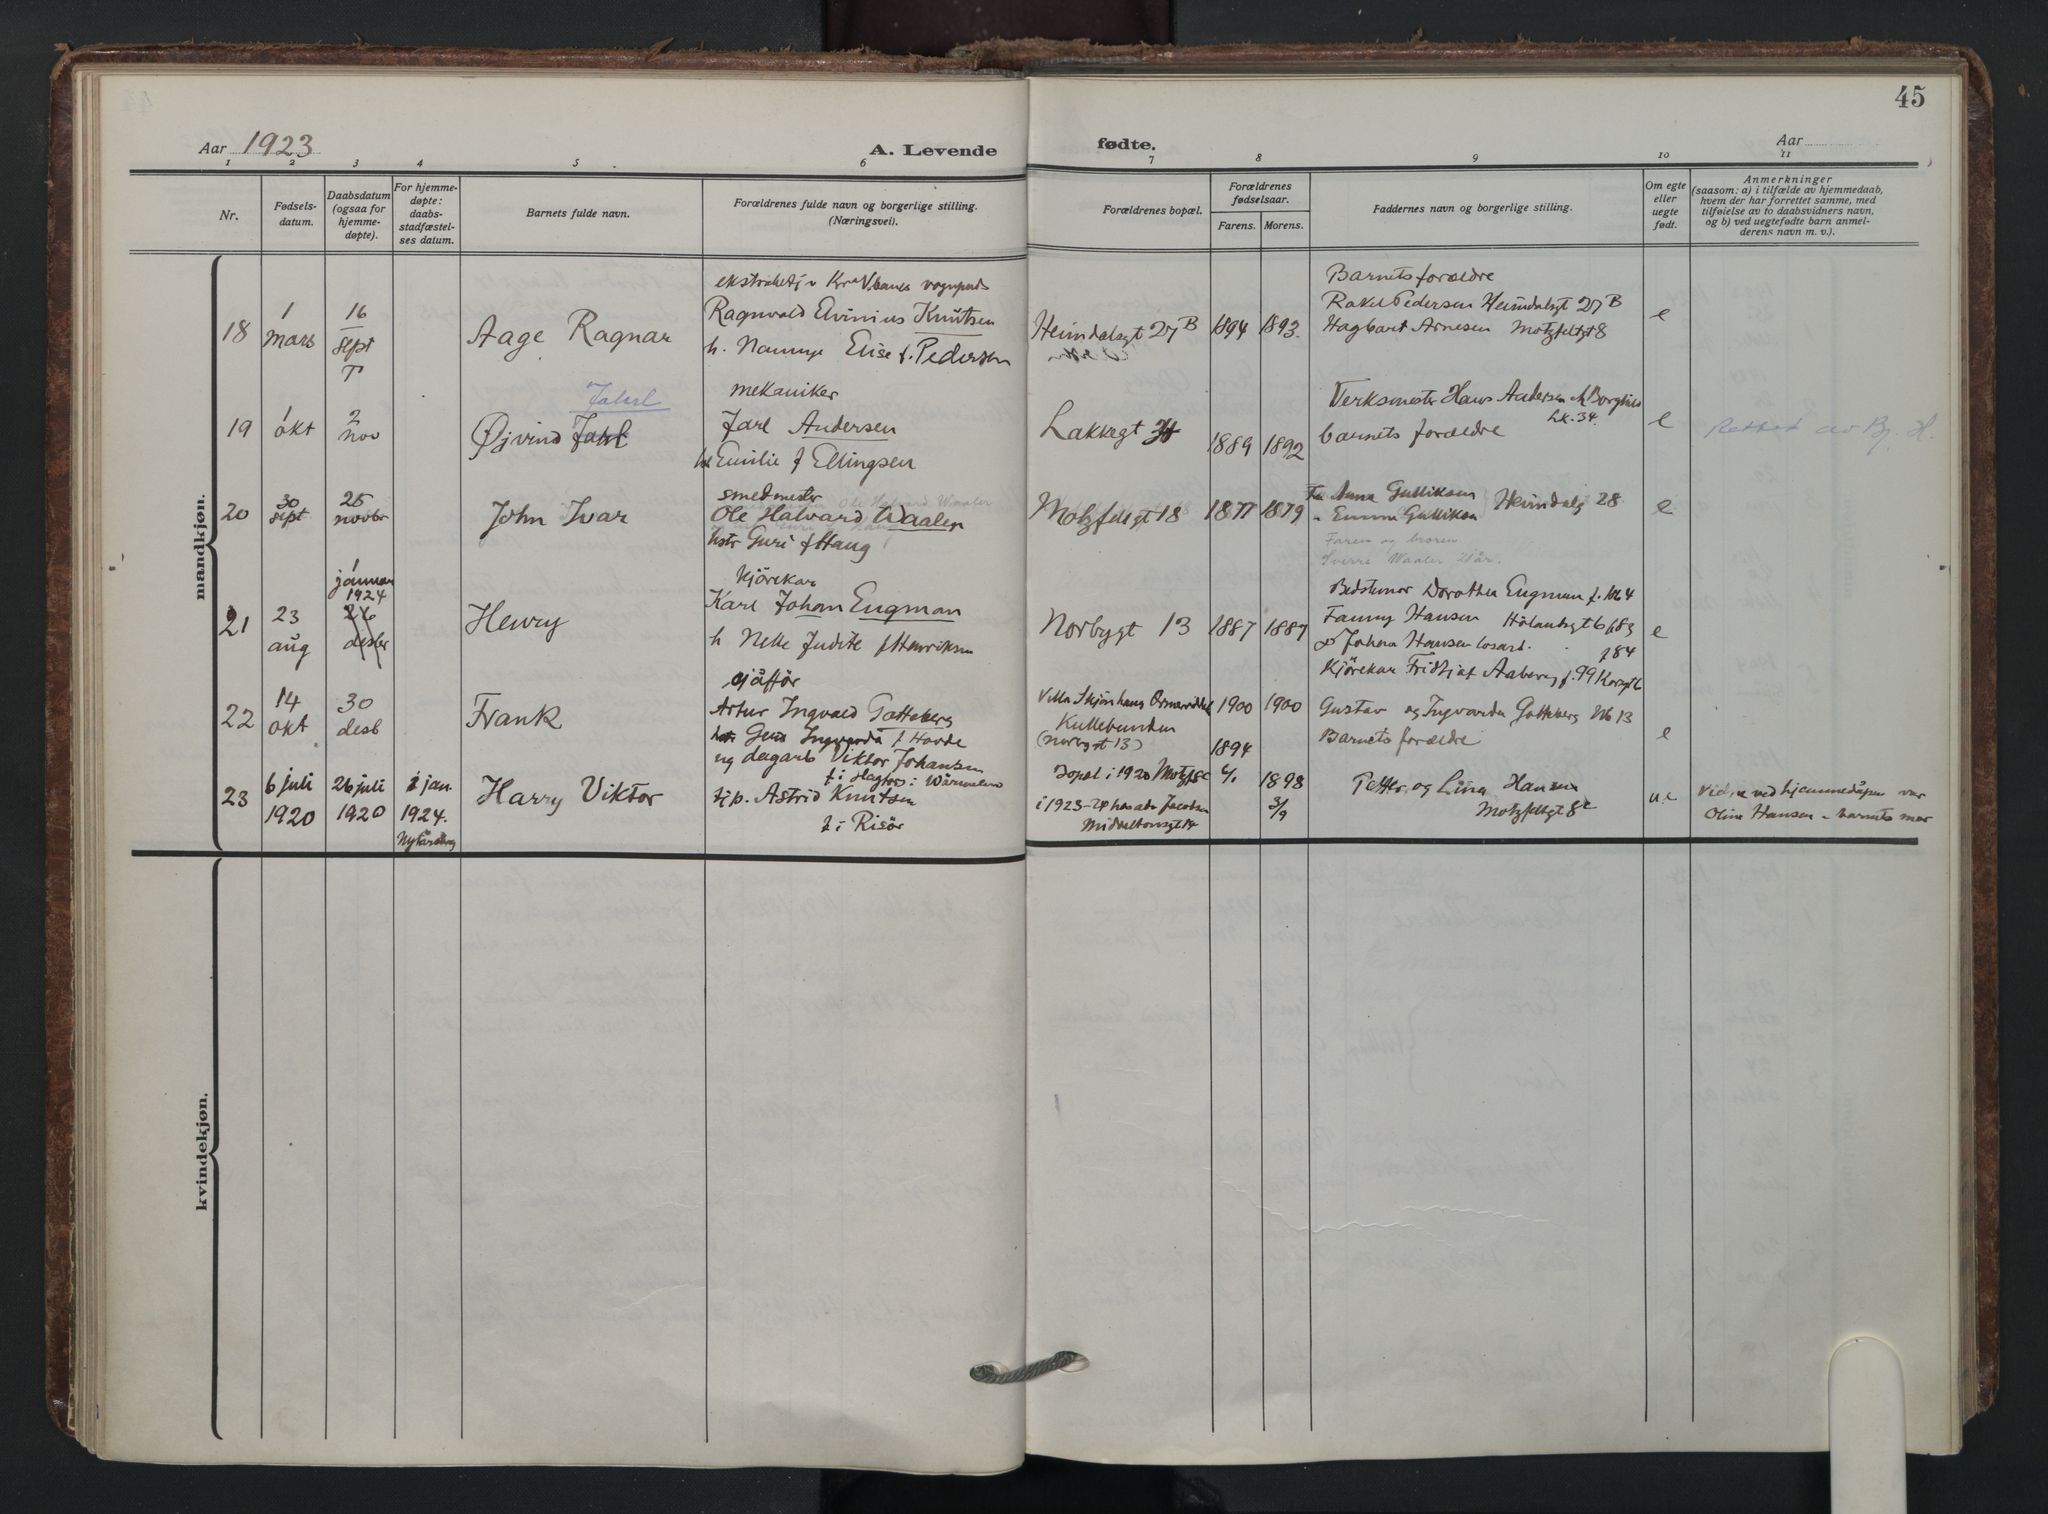 45
Aar 1923
A. Levende fødte.
Aar
1 2 3 4 5 6 7 8 9 10 11
Nr.
Fødsels-
datum.
Daabsdatum
(ogsaa for
hjemme-
døpte).
For hjemme-
døpte:
daabs-
stadfæstel-
ses datum.
Barnets fulde navn.
Forældrenes fulde navn og borgerlige stilling.
(Næringsvei).
Forældrenes bopæl.
Forældrenes
fødselsaar.
Farens. Morens.
Faddernes navn og borgerlige stilling.
Om egte
eller
uegte
født.
Anmerkninger
(saasom: a) i tilfælde av hjemmedaab,
hvem der har forrettet samme, med
tilføielse av to daabsvidners navn,
og b) ved uegtefødte barn anmel-
derens navn m. v.).
mandkjøn.
18
1
mars
16
sept
Aage Ragnar
Ragnvald Elvinius Knutsen
h. Elise f. Pedersen
Heimdalsgt 27 B
1894 1893
Barnets forældre
Rakel Pedersen Heimdalsgt 27 B
Hagbart Arnesen Motzfeltgt 8
e
19
1
okt
2
nov
Jahl
Øjvind
mekaniker
Jarl Andersen
Emilie f Ellingsen
Lakkegt
1889 1892
Verksmester Hans Andersen
Lk. 34
barnets forældre
e
Rettet av By. H.
20
30
sept
25
novbr
John Ivar
smedmester
Ole Halvard Waaler
hstr Guri f Haug
Motzfeltgt 18
1877 1879
Anna Gulliksen Heimdalsg 28
" Emma Gulliksen
Faren og broren
Sverre Waaler 21 år.
e
21
23
aug
1
januar
1924
26
desbr
Henry
Kjörekar
Karl Johan Engman
h Nelle Judite f Henriksen
Norbygt 13
1887 1887
Bedstemor Dorothea Engman
Fanny Hansen
Johan Hansen losarb.
f 84
Kjörekar Fridtjof Aaberg f. 99 Korsgt 6
e
22
14
okt
30
desb
Frank
sjåffør
Artur Ingvald Gotteberg
Ingvarda f Hovde
Villa Skjönhaug
Kullebunden
(norbygt 13)
1900 1900
Gustav og Ingvarda Gotteberg Nb 13
Barnets forældre
e
23
6 juli
1920
26 juli
1920
1 jan.
1924.
Harry Viktor
ug dagarb Viktor Johansen
f i Hagfors i Wärmeland
tjp. Astrid Knutsen
f i Risör
bopæl i 1920 Motzf 8c
i 1923-24 hos arb Jacobsen
Middeltonsgt 14
1894
1898
3/9
Petter og Lina Hansen
Motzfeltgt 8c
u.e
Vidne ved hjemmedåpen var
Oline Hansen - barnets mor
kvindekjøn.